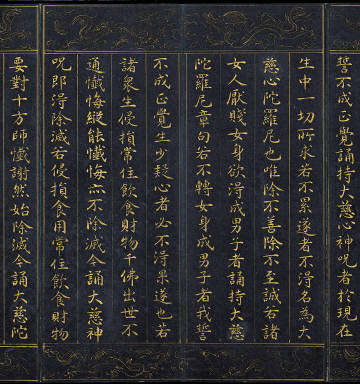 誓不成正覺誦持大慈心神呪者於現在
生中一切所求若不果遂者不得名為大
慈心陀羅尼也唯除不善除不至誠若諸
女人厭賤女身欲得成男子者誦持大慈
陀羅尼章句若不轉女身成男子者我誓
不成正覺生少疑心者必不得果遂也若
諸衆生侵損常住飲食財物千佛出世不
通懺悔縱能懺悔亦不除滅今誦大慈神
呪即得除滅若侵損食用常住飲食財物
要對十方師懺謝然始除滅今誦大慈陀